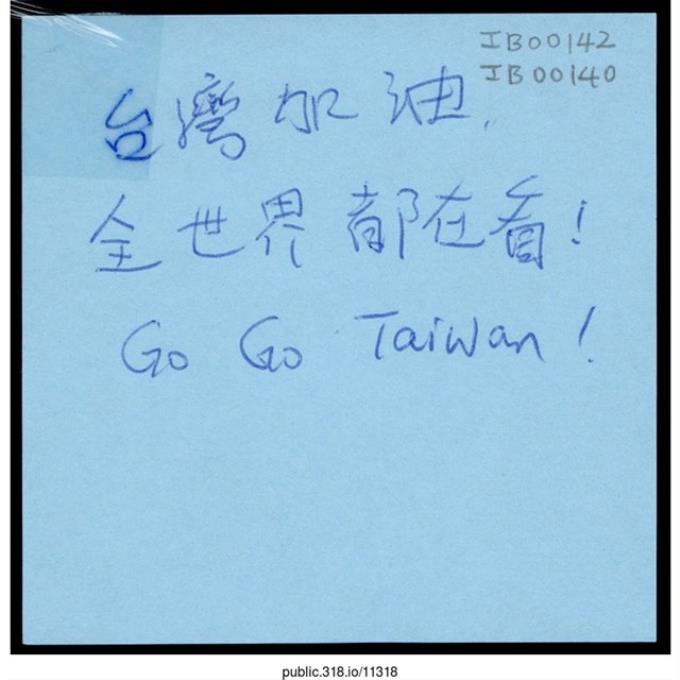 IB00142
IB00140
台灣加油,
全世界都在看!
Go Go Taiwan!
public.318.io/11318